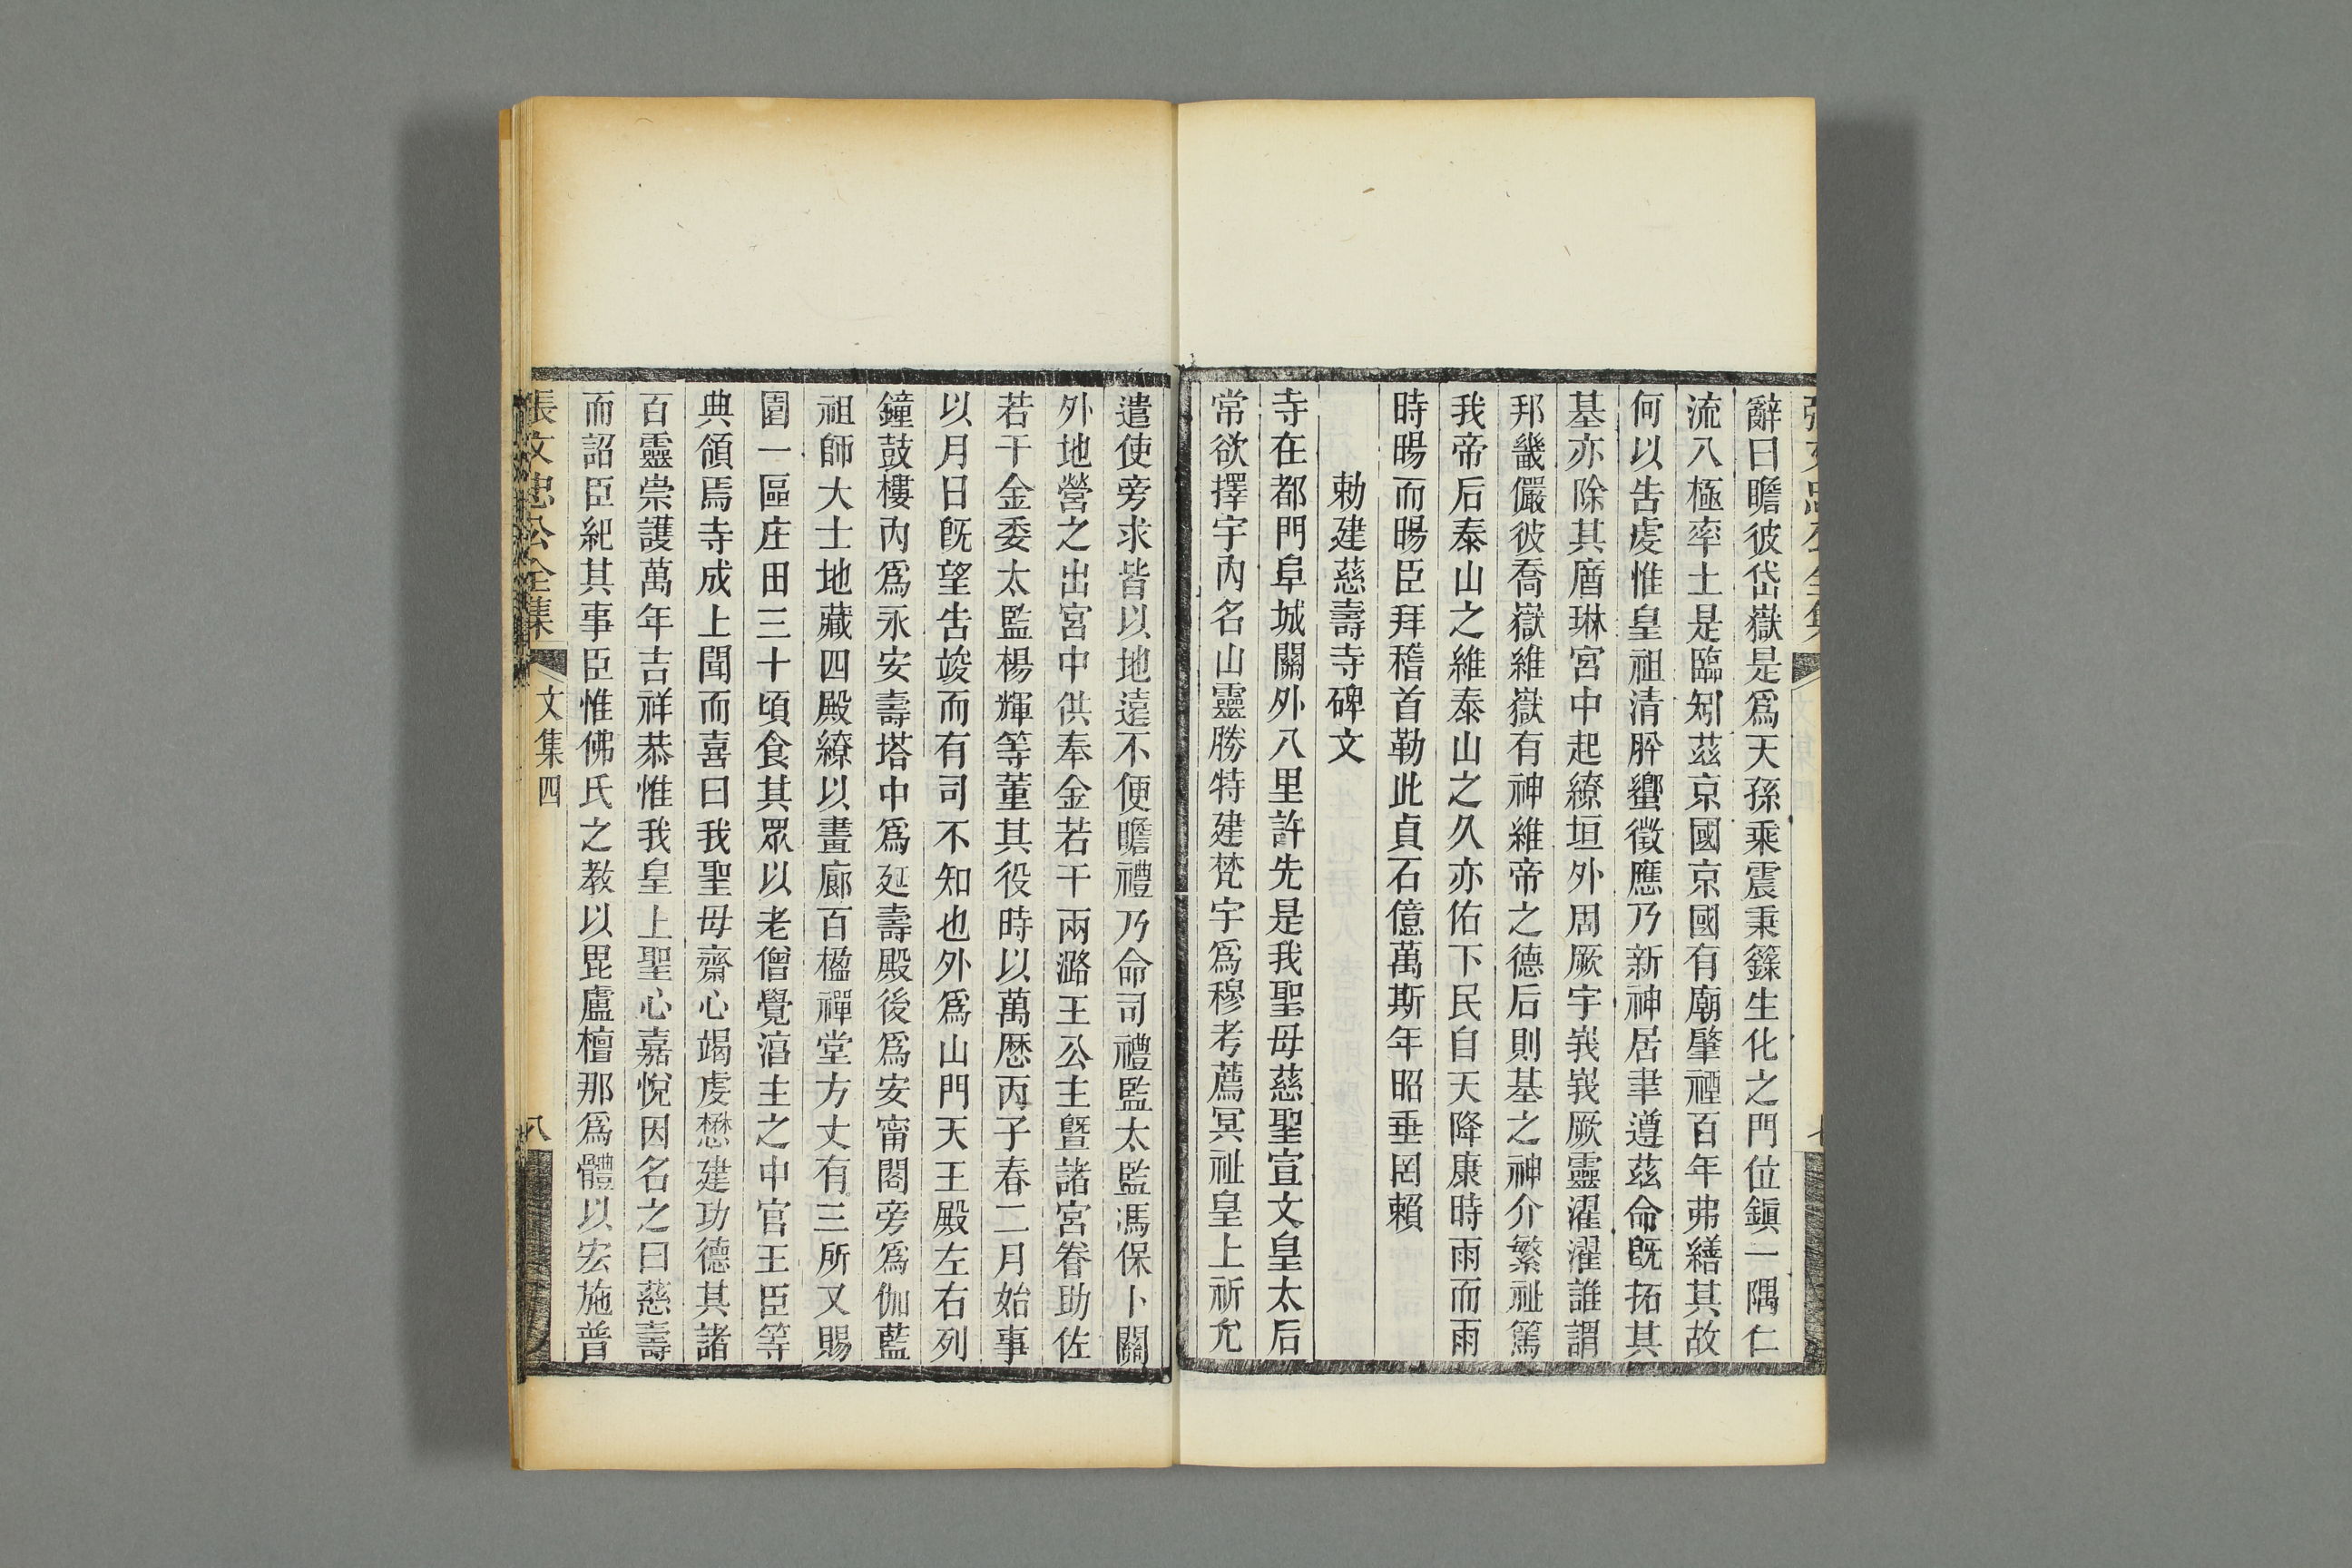 辭曰瞻彼岱嶽是爲天孫乘震秉籙生化之門位鎭一隅仁
流八極率土是臨矧茲京國京國有廟肇禋百年弗繕其故
何以告虔惟皇祖清肸蠁徵應乃新神居聿遵茲命旣拓其
基亦除其庮琳宮中起繚垣外周厥宇峩峩厥靈濯濯誰謂
邦畿儼彼喬嶽維嶽有神維帝之德后則基之神介繁祉篤
我帝后泰山之維泰山之久亦佑下民自天降康時雨而雨
時暘而暘臣拜稽首勒此貞石億萬斯年昭垂罔賴
勅建慈壽寺碑文
寺在都門阜城關外八里許先是我聖母慈聖宣文皇太后
常欲擇宇內名山靈勝特建梵宇爲穆考薦冥祉皇上祈允
遣使旁求皆以地遠不便瞻禮乃命司禮監太監馮保卜關
外地營之出宮中供奉金若干兩潞王公主曁諸宮眷助佐
若干金委太監楊輝等董其役時以萬歷丙子春二月始事
以月日旣望告竣而有司不知也外爲山門天王殿左右列
鐘鼓樓內爲永安壽塔中爲延壽殿後爲安甯閣旁爲伽藍
祖師大士地藏四殿繚以畫廊百楹禪堂方丈有三所又賜
園一區庄田三十頃食其眾以老僧覺淐主之中官王臣等
典領焉寺成上聞而喜曰我聖母齋心竭虔懋建功德其諸
百靈崇護萬年吉祥恭惟我皇上聖心嘉悅因名之曰慈壽
而詔臣紀其事臣惟佛氏之教以毘盧檀那爲體以宏施普
張文忠公全集
文集四
八